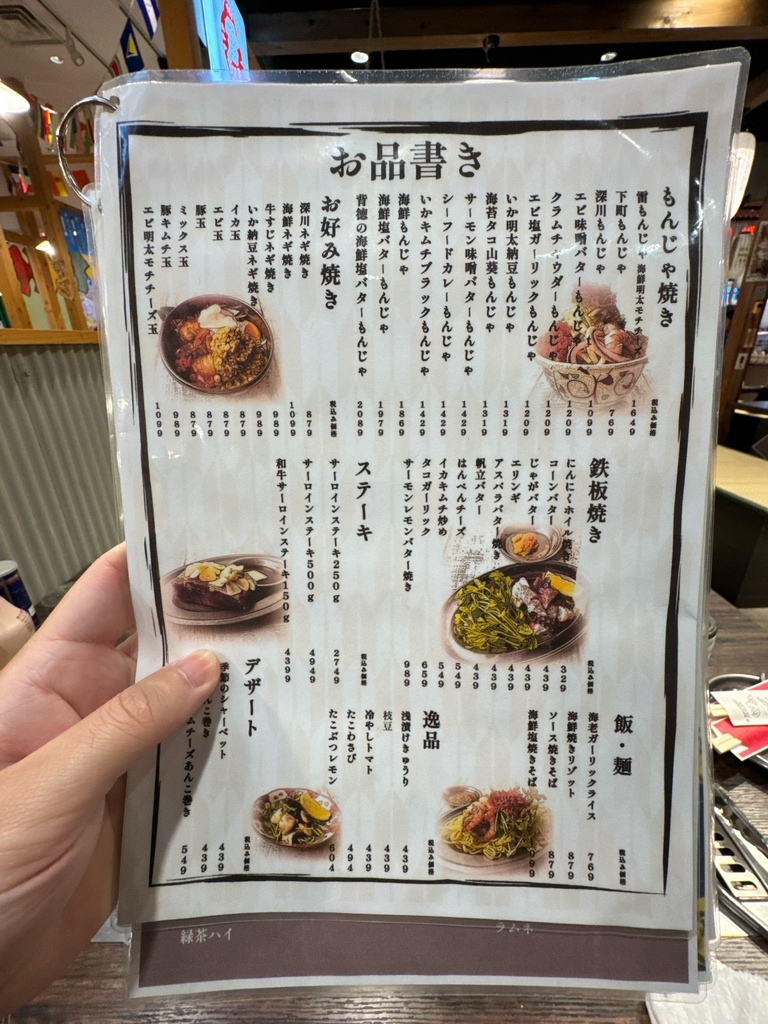 お品書き
もんじゃ焼き
税込み価格
雷もんじゃ 海鮮明太モチチーズ 1649
下町もんじゃ 769
深川もんじゃ 1099
エビ味噌バターもんじゃ 1209
クラムチャウダーもんじゃ 1209
エビ塩ガーリックもんじゃ 1209
いか明太納豆もんじゃ 1319
海苔タコ山葵もんじゃ 1319
サーモン味噌バターもんじゃ 1429
シーフードカレーもんじゃ 1429
いかキムチブラックもんじゃ 1429
海鮮もんじゃ 1869
海鮮塩バターもんじゃ 1979
背徳の海鮮塩バターもんじゃ 2089
お好み焼き
税込み価格
深川ネギ焼き 879
海鮮ネギ焼き 1099
牛すじネギ焼き 989
いか納豆ネギ焼き 989
イカ玉 879
エビ玉 879
豚玉 879
ミックス玉 879
豚キムチ玉 989
エビ明太モチチーズ玉 1099
鉄板焼き
税込み価格
にんにくホイル焼き 329
コーンバター 439
じゃがバター 439
エリンギ 439
アスパラバター焼き 439
帆立バター 439
はんぺんチーズ 549
イカキムチ炒め 549
タコガーリック 659
サーモンレモンバター焼き 989
ステーキ
税込み価格
サーロインステーキ250g 2749
サーロインステーキ500g 4949
和牛サーロインステーキ150g 4399
飯・麺
税込み価格
海老ガーリックライス 769
海鮮焼きリゾット 879
ソース焼きそば 879
海鮮塩焼きそば 999
逸品
税込み価格
浅漬けきゅうり 439
枝豆 439
冷やしトマト 439
たこわさび 494
たこぶつレモン 604
デザート
税込み価格
季節のシャーベット 439
んこ巻き 439
ムチーズあんこ巻き 549
緑茶ハイ
ラムネ